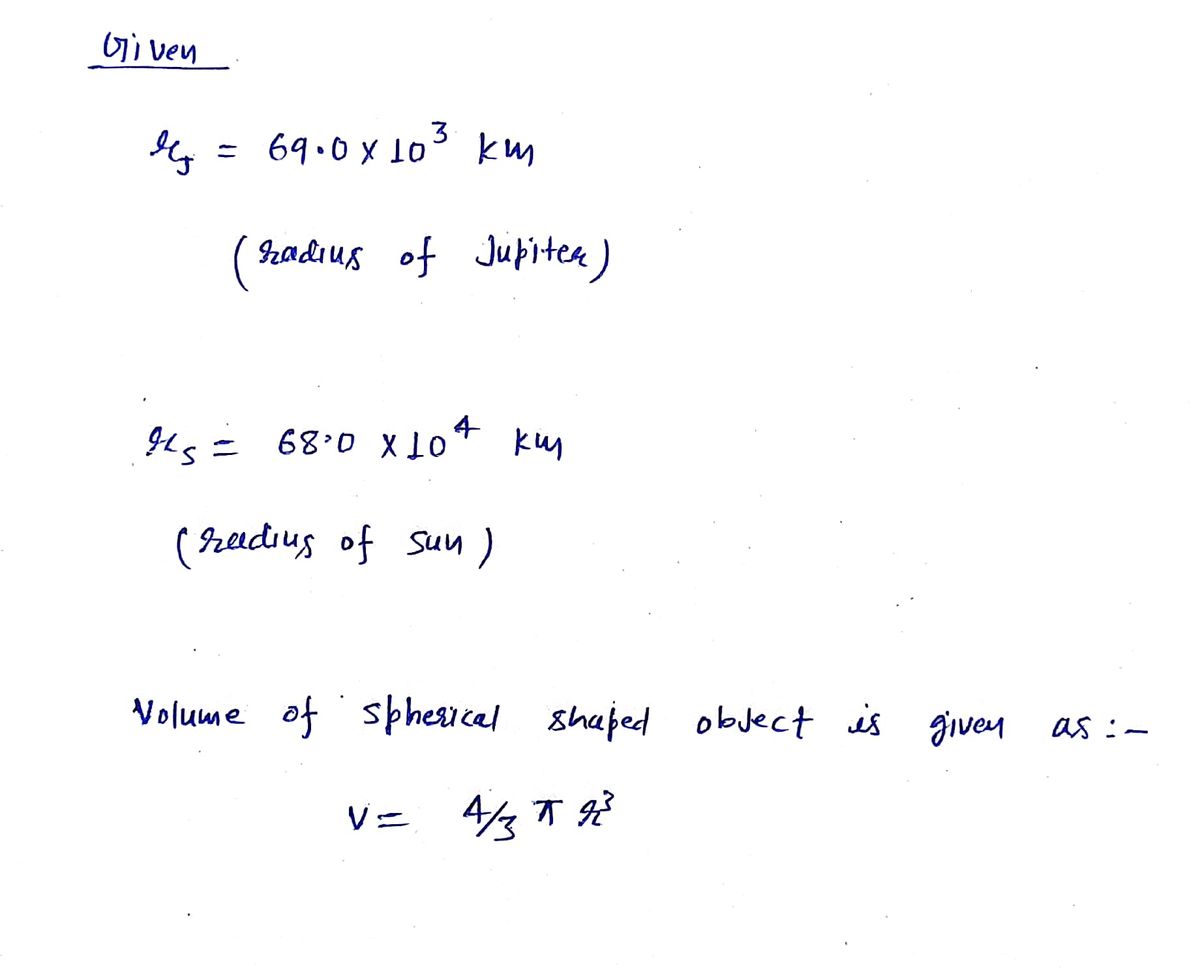 Given
r_J = 69.0 × 10³ km
(radius of Jupiter)
r_S = 68.0 × 10⁴ km
(radius of sun)
Volume of spherical shaped object is given as :-
V = 4/3 π r³